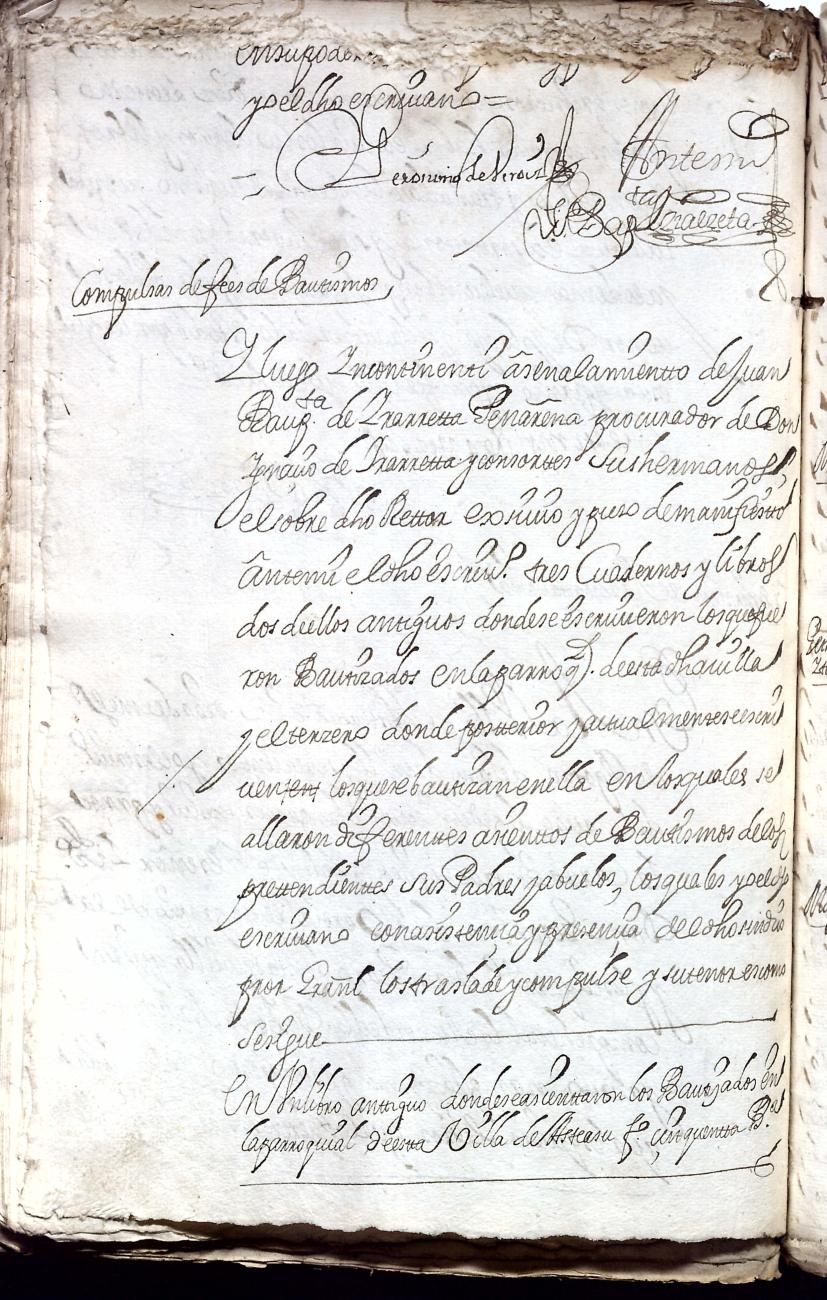 en su poder
yo el dho escrivano =
Geronimo de
Ante mi
Bapta Yzalzeta
Compulsas de fees de Bautismos
Y luego Yncontinenti a senalamientto de Juan
Baupta. de Yrarretta Penarena procurador de Don
Ygnacio de Yrarretta y consortes sus hermanos,
el sobre dho Rettor exsivio y puso de manifiestto
ante mi el dho escriuo. tres Cuadernos y libros
dos dellos antiguos donde se escriuieron los que fue
ron Bautizados en la parroql. de esta dha uilla
y el terzero donde posterior y actualmente se escri
uen los que se bautizan en ella en los quales se
allaron diferentes asienttos de Bautismos de los
prettendienttes sus Padres y abuelos, los quales yo el dho
escriuano con asistencia y presencia del dho sindico
pror Granl los traslade y compulse y su tenor es como
se sigue
En Un libro antiguo donde se asenttaron los Bautizados en
la parroquial de esta Villa de Asteasu fo. cinquentta B.ta